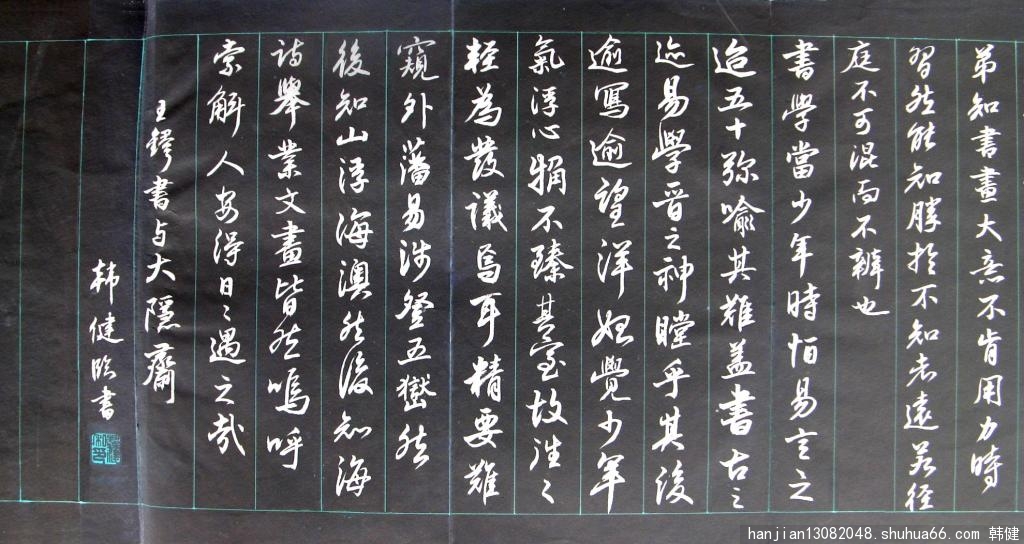 弟知書畫大意不肯用力時
習然能知勝於不知者遠若徑
庭不可混而不辨也
書學當少年時怕易言之
迨五十弥喻其难蓋書古之
迹易學晋之神瞠乎其後
逾寫逾望洋始覺少年
氣浮心粗不臻其室故往々
輕為發議焉耳精要難
窺外藩易涉登五嶽然
後知山浮海澳然後知海
詩舉業文畫皆然嗚呼
索解人安得日々遇之哉
王鐸書与大隱齋
韩健臨書
hanjian13082048. shuhua66. com 韩健